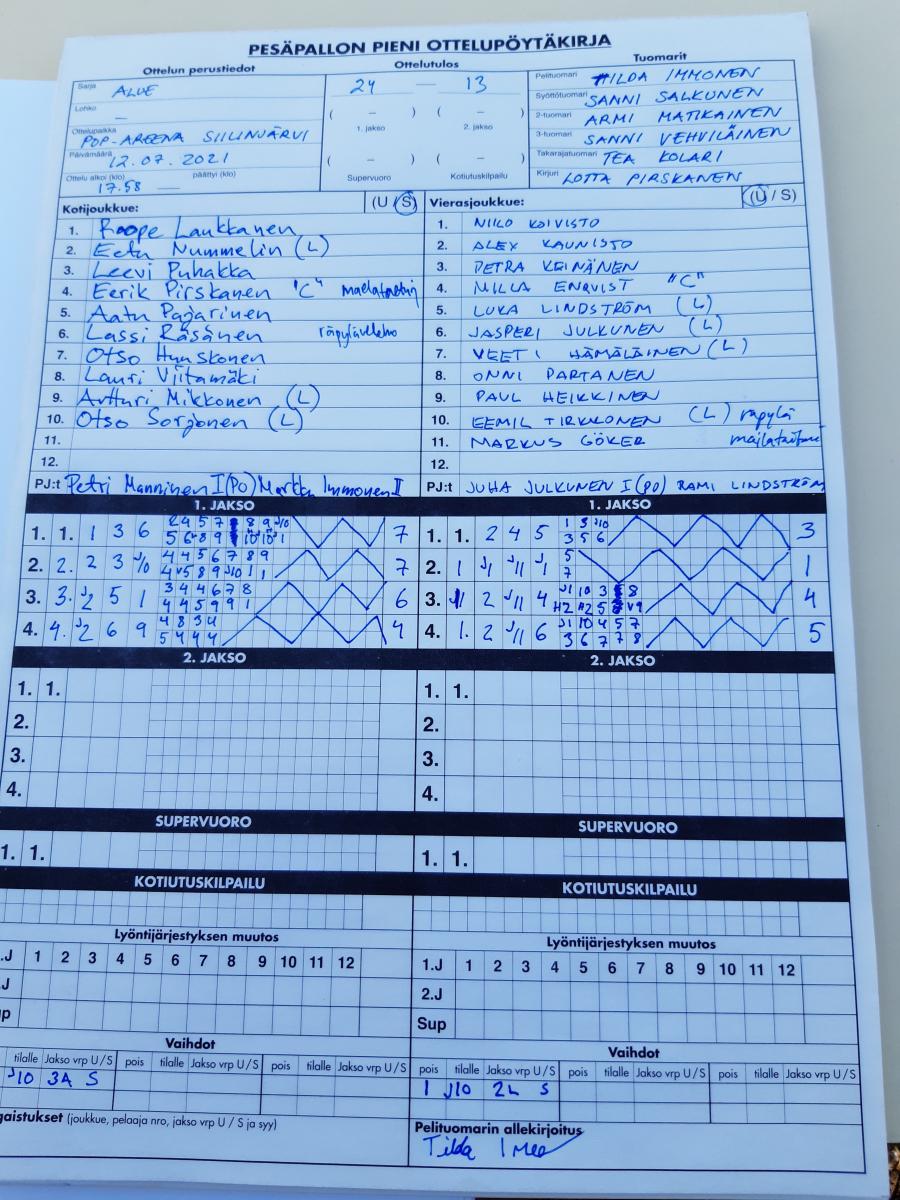 PESÄPALLON PIENI OTTELUPÖYTÄKIRJA
Ottelun perustiedot
Ottelutulos
Tuomarit
Sarja ALUE
Lohko –
Ottelupaikka POP-AREENA SIILINJÄRVI
Päivämäärä 12.07.2021
Ottelu alkoi (klo) 17.58 päättyi (klo) —
24 — 13
( – ) ( – )
1. jakso 2. jakso
( – ) ( – )
Supervuoro Kotiutuskilpailu
Pelituomari HILDA IMMONEN
Syöttötuomari SANNI SALKUNEN
2-tuomari ARMI MATIKAINEN
3-tuomari SANNI VEHVILÄINEN
Takarajatuomari TEA KOLARI
Kirjuri LOTTA PIRSKANEN
Kotijoukkue: (U / S)
1. Roope Laukkanen
2. Eetu Nummelin (L)
3. Leevi Puhakka
4. Eerik Pirskanen "C"
5. Aatu Pajarinen
6. Lassi Räsänen
7. Otso Huuskonen
8. Lauri Viitamäki
9. Artturi Mikkonen (L)
10. Otso Sorjonen (L)
11.
12.
PJ:t Petri Manninen I (PO) Immonen II
Vierasjoukkue: (U / S)
1. NIILO KOIVISTO
2. ALEX KAUNISTO
3. PETRA KEINÄNEN
4. MILLA ENQVIST "C"
5. LUKA LINDSTRÖM (L)
6. JASPERI JULKUNEN (L)
7. VEETI HÄMÄLÄINEN (L)
8. ONNI PARTANEN
9. PAUL HEIKKINEN
10. EEMIL TIRKKONEN (L) räpylä
11. MARKUS GÖKER
12.
PJ:t JUHA JULKUNEN I (PO) RAMI LINDSTRÖM
1. JAKSO
1. 1. 1 3 6 7
2. 2. 2 3 J10 7
3. 3. J2 5 1 6
4. 4. J2 6 9 4
1. JAKSO
1. 1. 2 4 5 3
2. 1 J1 J11 J1 1
3. 2 J11 4 4
4. 1. 2 J11 6 5
2. JAKSO
1. 1.
2.
3.
4.
2. JAKSO
1. 1.
2.
3.
4.
SUPERVUORO
1. 1.
SUPERVUORO
1. 1.
KOTIUTUSKILPAILU
KOTIUTUSKILPAILU
Lyöntijärjestyksen muutos
.J 1 2 3 4 5 6 7 8 9 10 11 12
J
p
Lyöntijärjestyksen muutos
1.J 1 2 3 4 5 6 7 8 9 10 11 12
2.J
Sup
Vaihdot
tilalle Jakso vrp U / S pois tilalle Jakso vrp U / S pois tilalle Jakso vrp U / S
J10 3A S
Vaihdot
pois tilalle Jakso vrp U / S pois tilalle Jakso vrp U / S pois tilalle Jakso vrp U / S
1 J10 2L S
gaistukset (joukkue, pelaaja nro, jakso vrp U / S ja syy)
Pelituomarin allekirjoitus